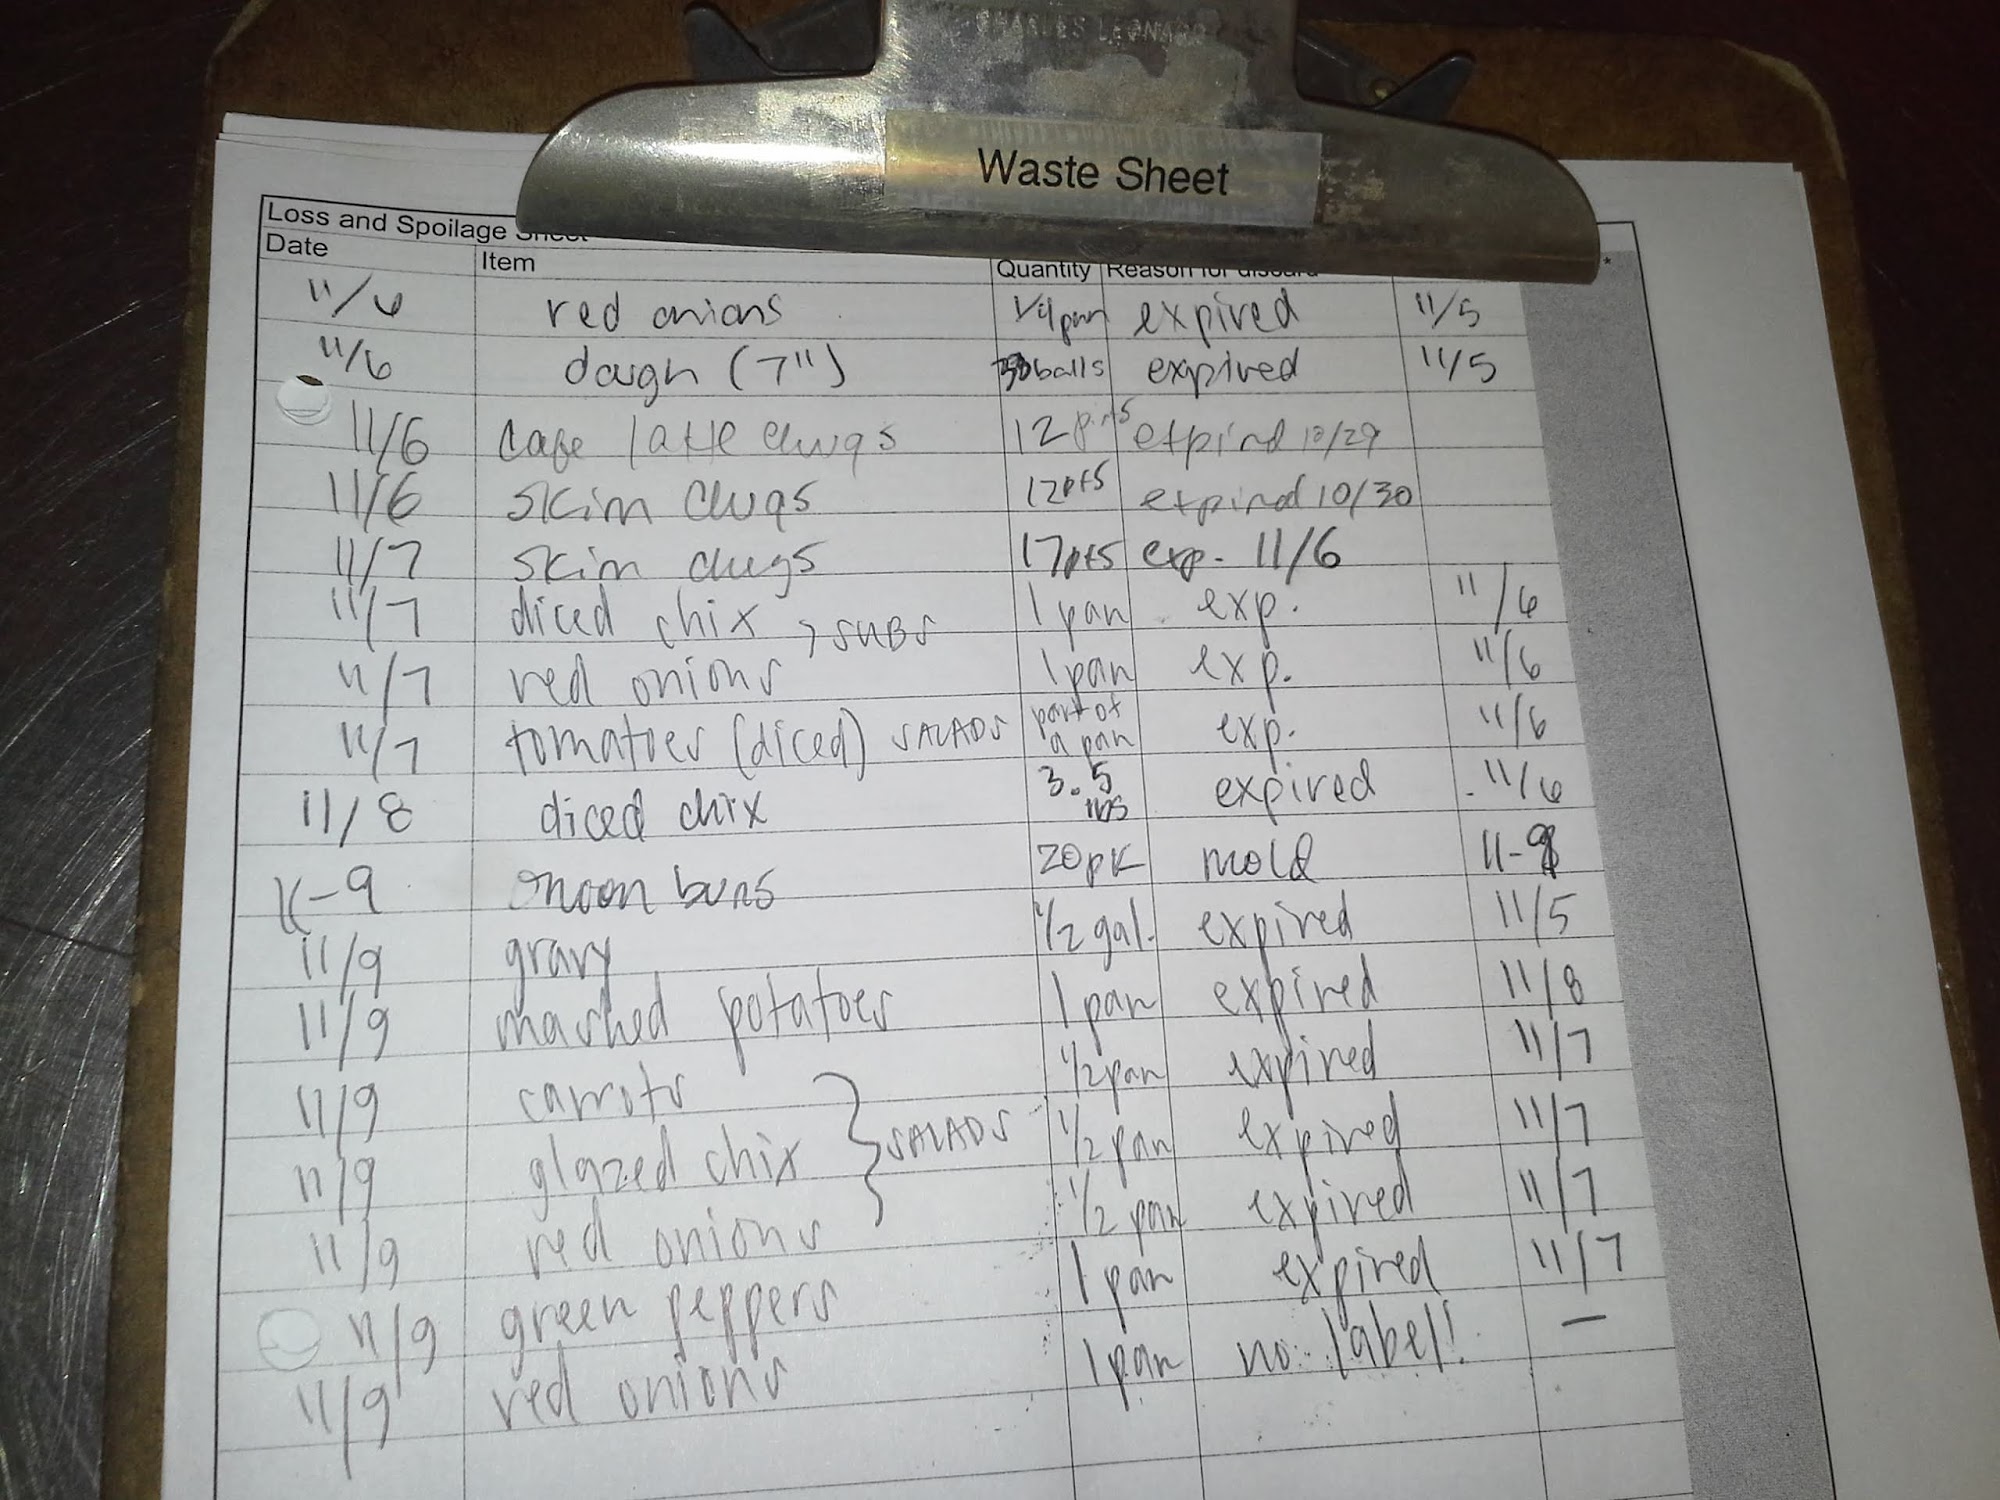 CHARLES LEONARD
Waste Sheet
Loss and Spoilage Sheet
Date Item Quantity Reason for discard *
11/6 red onions 1/4 pan expired 11/5
11/6 dough (7") balls expired 11/5
11/6 cafe latte chugs 12 pints expired 10/29
11/6 skim chugs 12pts expired 10/30
11/7 skim chugs 17pts exp. 11/6
11/7 diced chix > SUBS 1 pan exp. 11/6
11/7 red onions 1 pan exp. 11/6
11/7 tomatoes (diced) SALADS part of a pan exp. 11/6
11/8 diced chix 3.5 lbs expired 11/6
11-9 onoon buns 20pk mold 11-9
11/9 gravy 1/2 gal. expired 11/5
11/9 mashed potatoes 1 pan expired 11/8
11/9 carrots 1/2 pan expired 11/7
11/9 glazed chix } SALADS 1/2 pan expired 11/7
11/9 red onions 1/2 pan expired 11/7
11/9 green peppers 1 pan expired 11/7
11/9 red onions 1 pan no label! —